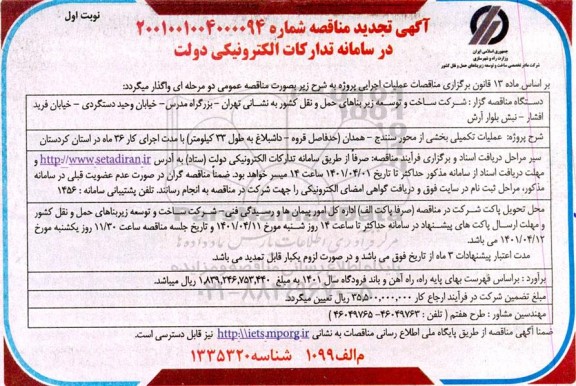 نوبت اول
آگهی تجدید مناقصه شماره ۲۰۰۱۰۰۱۰۰۴۰۰۰۰۹۴
در سامانه تدارکات الکترونیکی دولت
جمهوری اسلامی ایران
وزارت راه و شهرسازی
شرکت مادر تخصصی ساخت و توسعه زیربناهای حمل و نقل کشور
بر اساس ماده ۱۳ قانون برگزاری مناقصات عملیات اجرایی پروژه به شرح زیر بصورت مناقصه عمومی دو مرحله ای واگذار میگردد:
دستگاه مناقصه گزار : شرکت ساخت و توسعه زیر بناهای حمل و نقل کشور به نشانی تهران - بزرگراه مدرس- خیابان وحید دستگردی - خیابان فرید
افشار - نبش بلوار آرش
شرح پروژه: عملیات تکمیلی بخشی از محور سنندج - همدان (حدفاصل قروه - داشبلاغ به طول ۳۳ کیلومتر) با مدت اجرای کار ۳۶ ماه در استان کردستان
سیر مراحل دریافت اسناد و برگزاری فرآیند مناقصه: صرفاً از طریق سامانه تدارکات الکترونیکی دولت (ستاد) به آدرس http://www.setadiran.ir و
مهلت دریافت اسناد از سامانه مذکور حداکثر تا تاریخ ۱۴۰۱/۰۴/۰۱ ساعت ۱۴ میسر خواهد بود. ضمنا مناقصه گران در صورت عدم عضویت قبلی در سامانه
مذکور، مراحل ثبت نام در سایت فوق و دریافت گواهی امضای الکترونیکی را جهت شرکت در مناقصه به انجام رسانند. تلفن پشتیبانی سامانه : ۱۴۵۶
محل تحویل پاکت شرکت در مناقصه (صرفا پاکت الف) اداره کل امور پیمان ها و رسیدگی فنی- شرکت ساخت و توسعه زیربناهای حمل و نقل کشور
و مهلت ارسال پاکت های پیشنهاد در سامانه حداکثر تا ساعت ۱۴ روز شنبه مورخ ۱۴۰۱/۰۴/۱۱ و تاریخ جلسه مناقصه ساعت ۱۱/۳۰ روز یکشنبه مورخ
۱۴۰۱/۰۴/۱۲ می باشد.
مدت اعتبار پیشنهادات ۳ ماه از تاریخ فوق می باشد و در صورت لزوم یکبار قابل تمدید می باشد.
برآورد : براساس فهرست بهای پایه راه، راه آهن و باند فرودگاه سال ۱۴۰۱ به مبلغ ۱,۸۳۹,۲۴۶,۷۵۳,۴۴۰ ریال میباشد.
مبلغ تضمین شرکت در فرآیند ارجاع کار ۳۵,۵۰۰,۰۰۰,۰۰۰ ریال تعیین میگردد.
مهندسین مشاور : طرح هفتم ( تلفن : ۴۶۰۴۹۷۶۳- ۴۶۰۴۹۷۶۵ )
ضمنا آگهی مناقصه از طریق پایگاه ملی اطلاع رسانی مناقصات به نشانی http:\\iets.mporg.ir نیز قابل دسترسی است.
م الف ۱۰۹۹ شناسه ۱۳۳۵۳۲۰